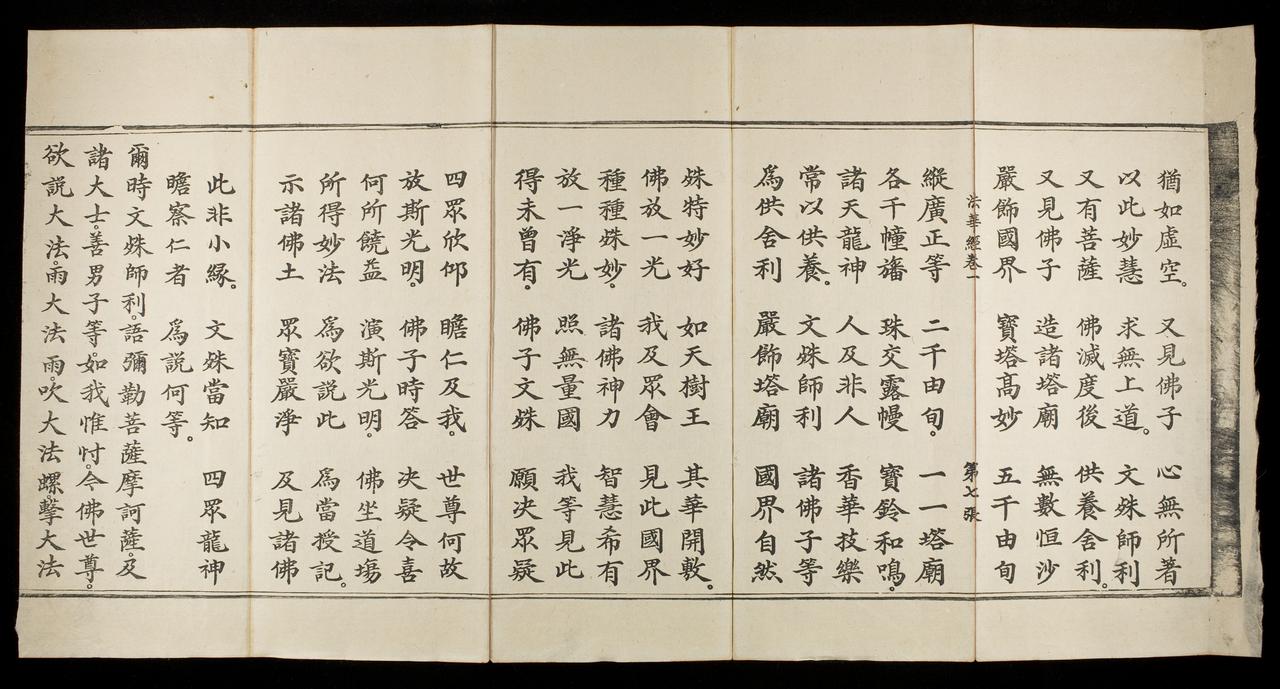 猶如虛空。 又見佛子 心無所著
以此妙慧 求無上道。 文殊師利
又有菩薩 佛滅度後 供養舍利。
又見佛子 造諸塔廟 無數恒沙
嚴飾國界 寶塔髙妙 五千由旬
法華經卷一 第七張
縱廣正等 二千由旬。 一一塔廟
各千幢旛 珠交露幔 寶鈴和鳴。
諸天龍神 人及非人 香華技樂
常以供養。 文殊師利 諸佛子等
為供舍利 嚴飾塔廟 國界自然
殊特妙好 如天樹王 其華開敷。
佛放一光 我及眾會 見此國界
種種殊妙。 諸佛神力 智慧希有
放一淨光 照無量國 我等見此
得未曾有。 佛子文殊 願決眾疑
四眾欣仰 瞻仁及我。 世尊何故
放斯光明。 佛子時答 決疑令喜
何所饒益 演斯光明。 佛坐道場
所得妙法 為欲說此 為當授記。
示諸佛土 眾寶嚴淨 及見諸佛
此非小緣。 文殊當知 四眾龍神
瞻察仁者 為說何等。
爾時文殊師利。語彌勒菩薩摩訶薩。及
諸大士。善男子等。如我惟忖。今佛世尊。
欲說大法。雨大法雨。吹大法螺。擊大法